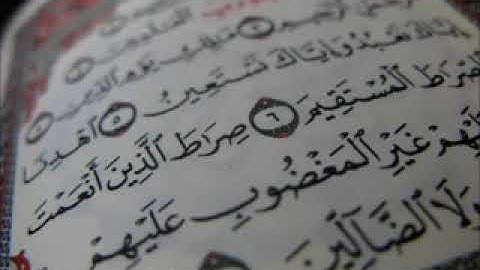 الرَّحْمَٰنِ الرَّحِيمِ مَٰلِكِ يَوْمِ الدِّينِ
إِيَّاكَ نَعْبُدُ وَإِيَّاكَ نَسْتَعِينُ ٥ اهْدِنَا
الصِّرَاطَ الْمُسْتَقِيمَ ٦ صِرَاطَ الَّذِينَ أَنْعَمْتَ
عَلَيْهِمْ غَيْرِ الْمَغْضُوبِ عَلَيْهِمْ
وَلَا الضَّآلِّينَ